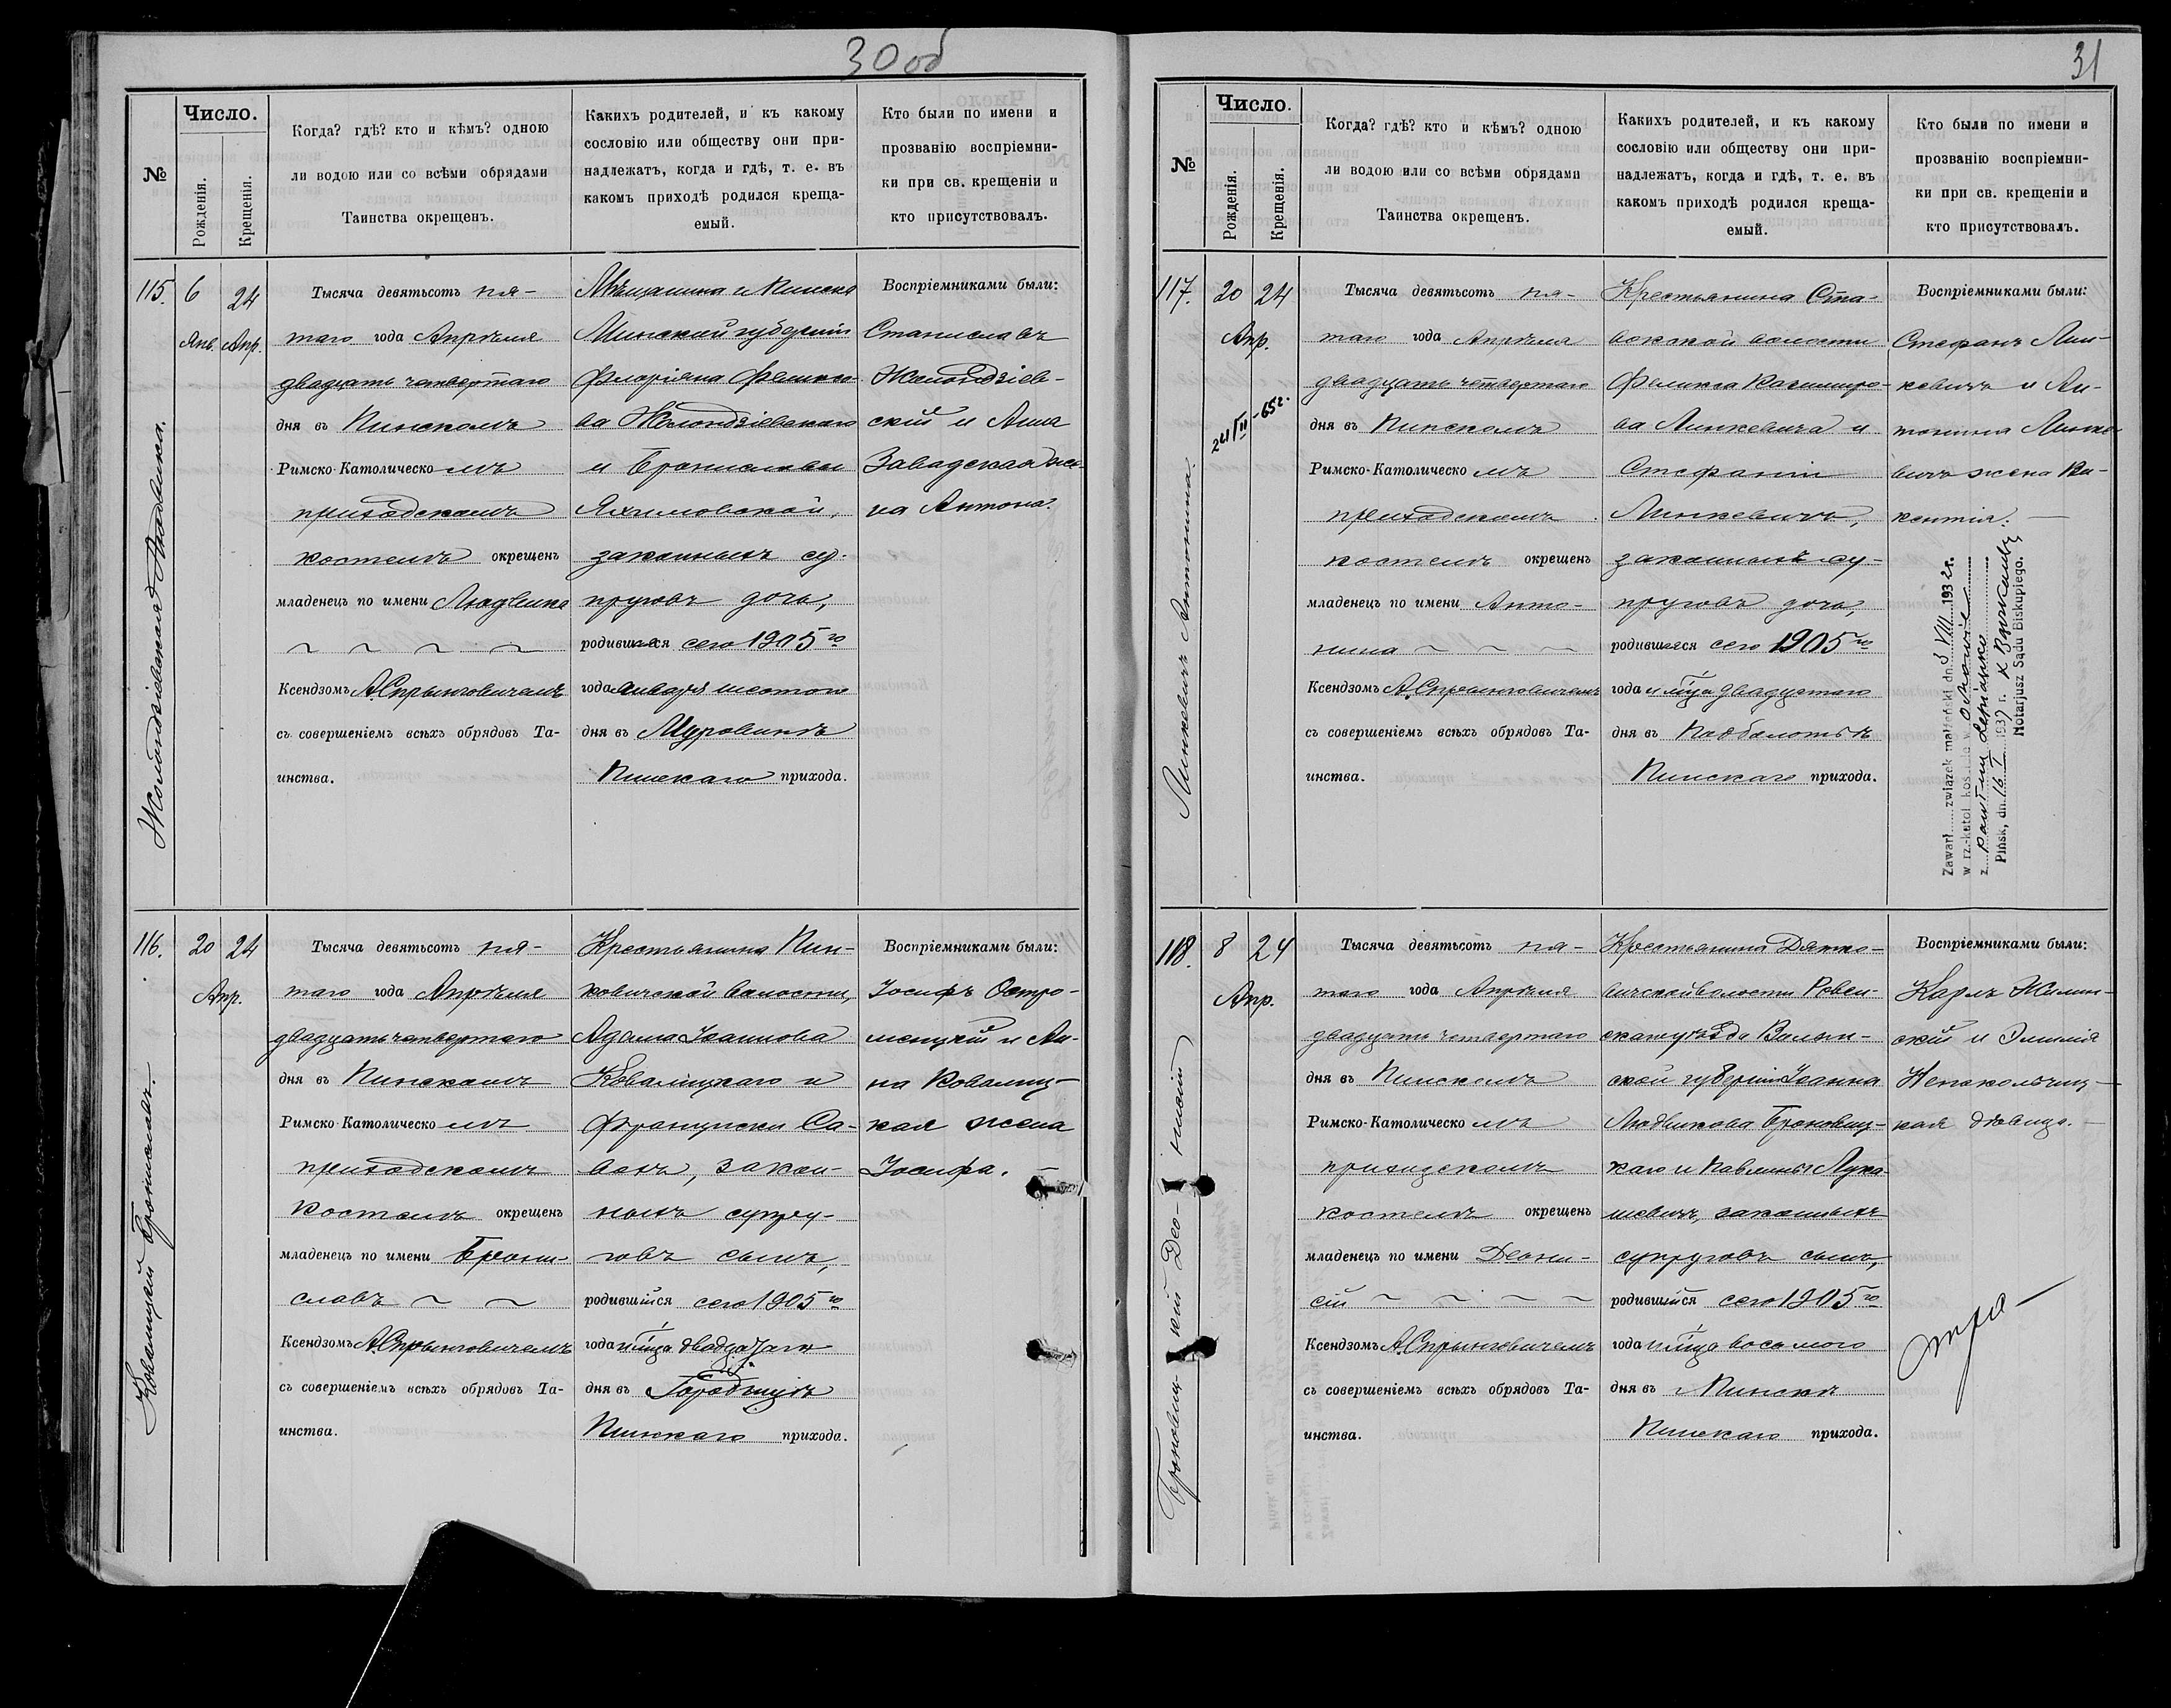 30 об
№
Число.
Рожденія.
Крещенія.
Когда? гдѣ? кто и кѣмъ? одною
ли водою или со всѣми обрядами
Таинства окрещенъ.
Какихъ родителей, и къ какому
сословію или обществу они при-
надлежатъ, когда и гдѣ, т. е. въ
какомъ приходѣ родился креща-
емый.
Кто были по имени и
прозванію воспріемни-
ки при св. крещеніи и
кто присутствовалъ.
115.
6
24
Янв. Апр.
Людвика.
Тысяча девятьсотъ пя-
таго года Апрѣля
двадцать четвертаго
дня въ Пинскомъ
Римско-Католическомъ
приходскомъ
костелѣ окрещенъ
младенецъ по имени Людвика
Ксендзомъ А. Спрынговичемъ
съ совершеніемъ всѣхъ обрядовъ Та-
инства.
Мѣщанина г. Пинска
Минской губерніи
Флоріана
ва Жолондзіевскаго
и Брониславы
законныхъ су-
пруговъ дочь,
родившаяся сего 1905 го
года Января шестого
дня въ
Пинскаго прихода.
Воспріемниками были:
Станиславъ
Жолондзіев-
скій и Анна
Завадская же-
на Антона.
116.
20 24
Апр.
Ковалицкій Брониславъ.
Тысяча девятьсотъ пя-
таго года Апрѣля
двадцать четвертаго
дня въ Пинскомъ
Римско-Католическомъ
приходскомъ
костелѣ окрещенъ
младенецъ по имени Брони-
славъ
Ксендзомъ А. Спрынговичемъ
съ совершеніемъ всѣхъ обрядовъ Та-
инства.
Крестьянина Пин-
ковичской волости,
Адама Іоаннова
Ковалицкаго и
Франциски Са-
закон-
ныхъ супру-
говъ сынъ,
родившійся сего 1905 го
года и м-ца двадцатаго
дня въ Городищѣ
Пинскаго прихода.
Воспріемниками были:
Іосифъ Остро-
и Ан-
на Ковалиц-
кая жена
Іосифа.
31
№
Число.
Рожденія.
Крещенія.
Когда? гдѣ? кто и кѣмъ? одною
ли водою или со всѣми обрядами
Таинства окрещенъ.
Какихъ родителей, и къ какому
сословію или обществу они при-
надлежатъ, когда и гдѣ, т. е. въ
какомъ приходѣ родился креща-
емый.
Кто были по имени и
прозванію воспріемни-
ки при св. крещеніи и
кто присутствовалъ.
117.
20 24
Апр.
24/II-65г.
Линкевичъ Антонина.
Тысяча девятьсотъ пя-
таго года Апрѣля
двадцать четвертаго
дня въ Пинскомъ
Римско-Католическомъ
приходскомъ
костелѣ окрещенъ
младенецъ по имени Анто-
нина
Ксендзомъ А. Спрынговичемъ
съ совершеніемъ всѣхъ обрядовъ Та-
инства.
Крестьянина Ста-
вокской волости
Феликса Казимиро-
ва Линкевича и
Стефаніи
Линкевичъ,
законныхъ су-
пруговъ дочь,
родившаяся сего 1905 го
года и м-ца двадцатаго
дня въ Подболотьѣ
Пинскаго прихода.
Воспріемниками были:
Стефанъ Лин-
кевичъ и Ан-
тонина Линке-
вичъ жена Ви-
кентія.
Zawarł związek małżeński dn. 3 VIII 1932 r.
w rz.-katol. kościele w
z
Pińsk, dn. 16 I 1937 r.
Notarjusz Sądu Biskupiego.
118.
8 24
Апр.
Тысяча девятьсотъ пя-
таго года Апрѣля
двадцать четвертаго
дня въ Пинскомъ
Римско-Католическомъ
приходскомъ
костелѣ окрещенъ
младенецъ по имени Деони-
сій
Ксендзомъ А. Спрынговичемъ
съ совершеніемъ всѣхъ обрядовъ Та-
инства.
Крестьянина Дятко-
вичской волости Ровен-
скаго уѣзда Волын-
ской губерніи Іоанна
Людвикова Броновиц-
каго и Павлины Лука-
шевичъ, законныхъ
супруговъ сынъ,
родившійся сего 1905 го
года и м-ца восьмого
дня въ г. Пинскѣ
Пинскаго прихода.
Воспріемниками были:
Карлъ Жилин-
скій и Эмилія
кая дѣвица.